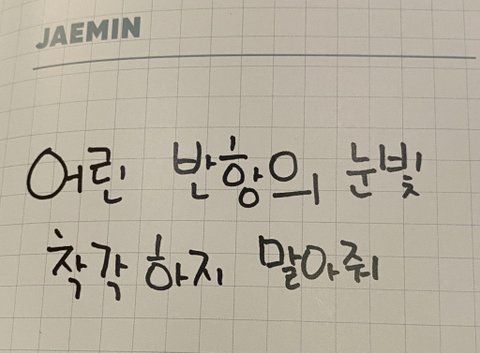 JAEMIN
어린 반항의 눈빛
착각하지 말아줘